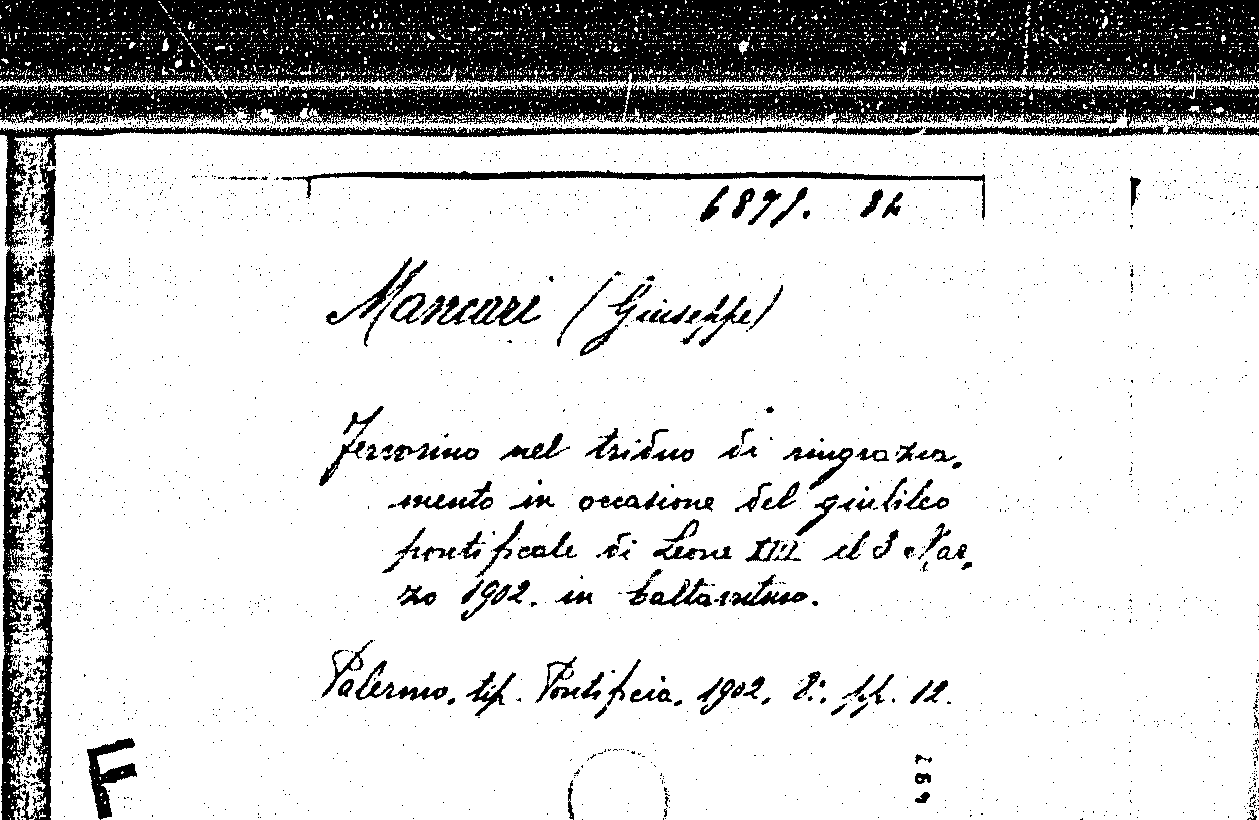 6871. 84
Mancari (Giuseppe)
Fervorino nel triduo di ringrazia-
mento in occasione del giubileo
pontificale di Leone XIII il 3 Mar-
zo 1902. in Caltavuturo.
Palermo, tip. Pontificia, 1902, 8:. pp. 12.
F
497